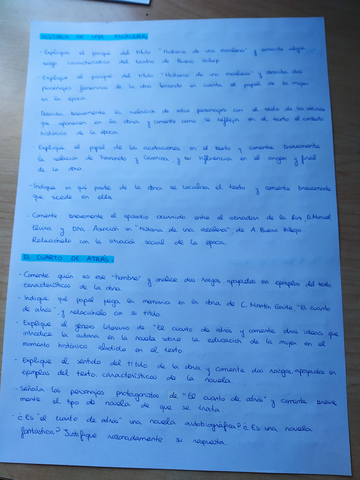 HISTORIA DE UNA ESCALERA
- Explique el porqué del título "Historia de una escalera" y comente algún
rasgo característico del teatro de Buero Vallejo.
- Explique el porqué del título "Historia de una escalera" y describa dos
personajes femeninos de la obra teniendo en cuenta el papel de la mujer
en la época
- Describa brevemente la relación de estos personajes con el resto de los vecinos
que aparecen en la obra y comente cómo se refleja en el texto el contexto
histórico de la época.
- Explique el papel de las acotaciones en el texto y comente brevemente
la relación de Fernando y Carmina, y su influencia en el origen y final
de la obra.
- Indique en qué parte de la obra se localiza el texto y comente brevemente
qué sucede en ella.
- Comente brevemente el episodio ocurrido entre el cobrador de la luz, D. Manuel,
Elvira y Dña. Asunción en "Historia de una escalera", de A. Buero Vallejo
Relaciónelo con la situación social de la época.
EL CUARTO DE ATRÁS
- Comente quién es ese "hombre" y analice dos rasgos apoyados en ejemplos del texto
característicos de la obra.
- Indique qué papel juega la memoria en la obra de C. Martín Gaite, "El cuarto
de atrás" y relaciónelo con su título.
- Explique el género literario de "El cuarto de atrás" y comente dos ideas que
introduce la autora en la novela sobre la educación de la mujer en el
momento histórico aludido en el texto.
- Explique el sentido del título de la obra y comente dos rasgos, apoyados en
ejemplos del texto, característicos de la novela.
- Señala los personajes protagonistas de "El cuarto de atrás" y comente breve
mente el tipo de novela de que se trata
- ¿Es "el cuarto de atrás" una novela autobiográfica? ¿Es una novela
fantástica? Justifique razonadamente su respuesta.